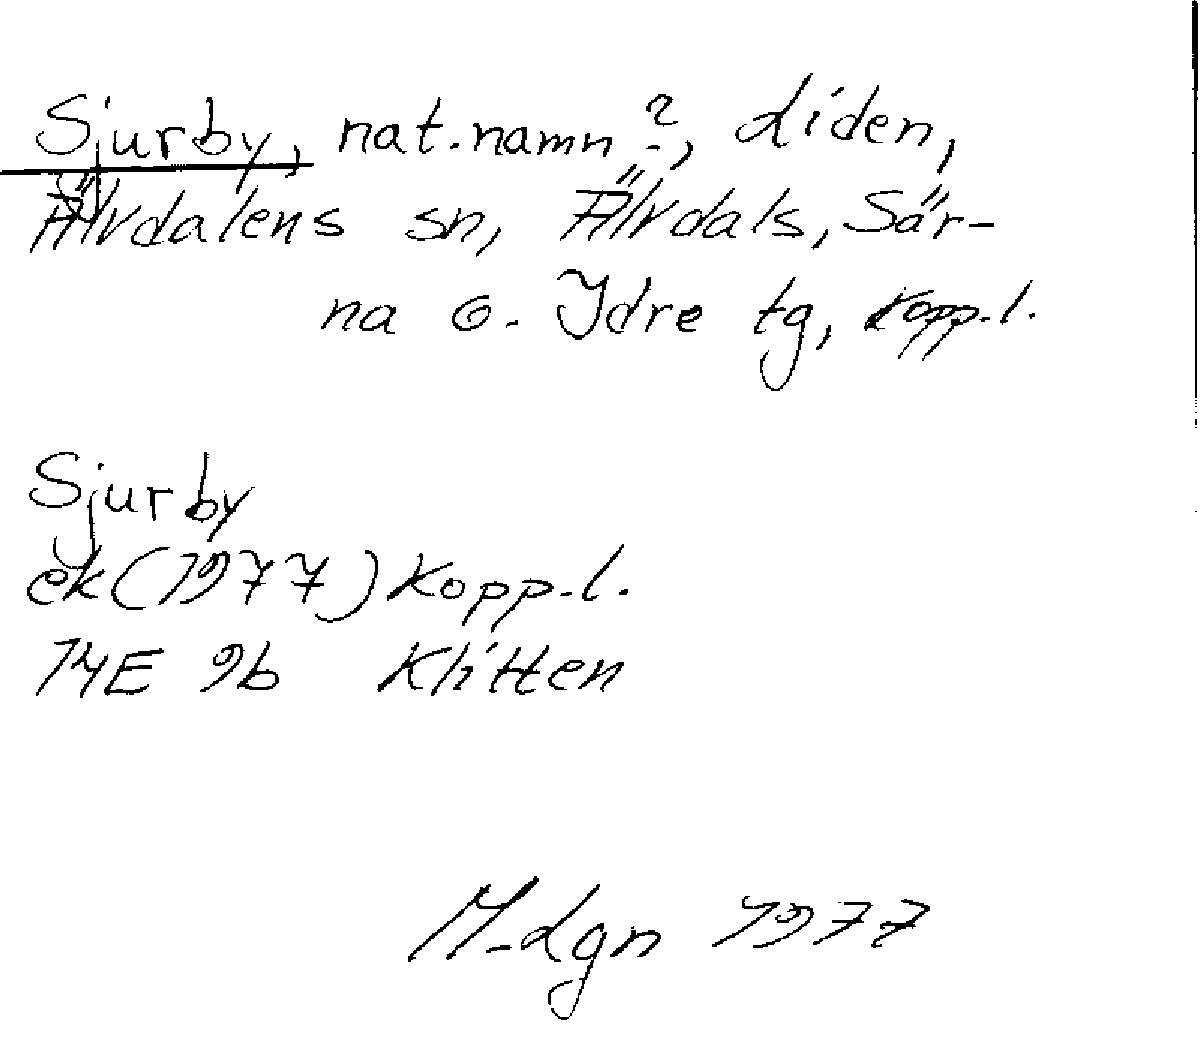 Sjurby, nat.namn?, Liden,
Älvdalens sn, Älvdals, Sär-
na o. Idre tg, Kopp.l.
Sjurby
ek (1977) Kopp.l.
14E 9b Klitten
1977